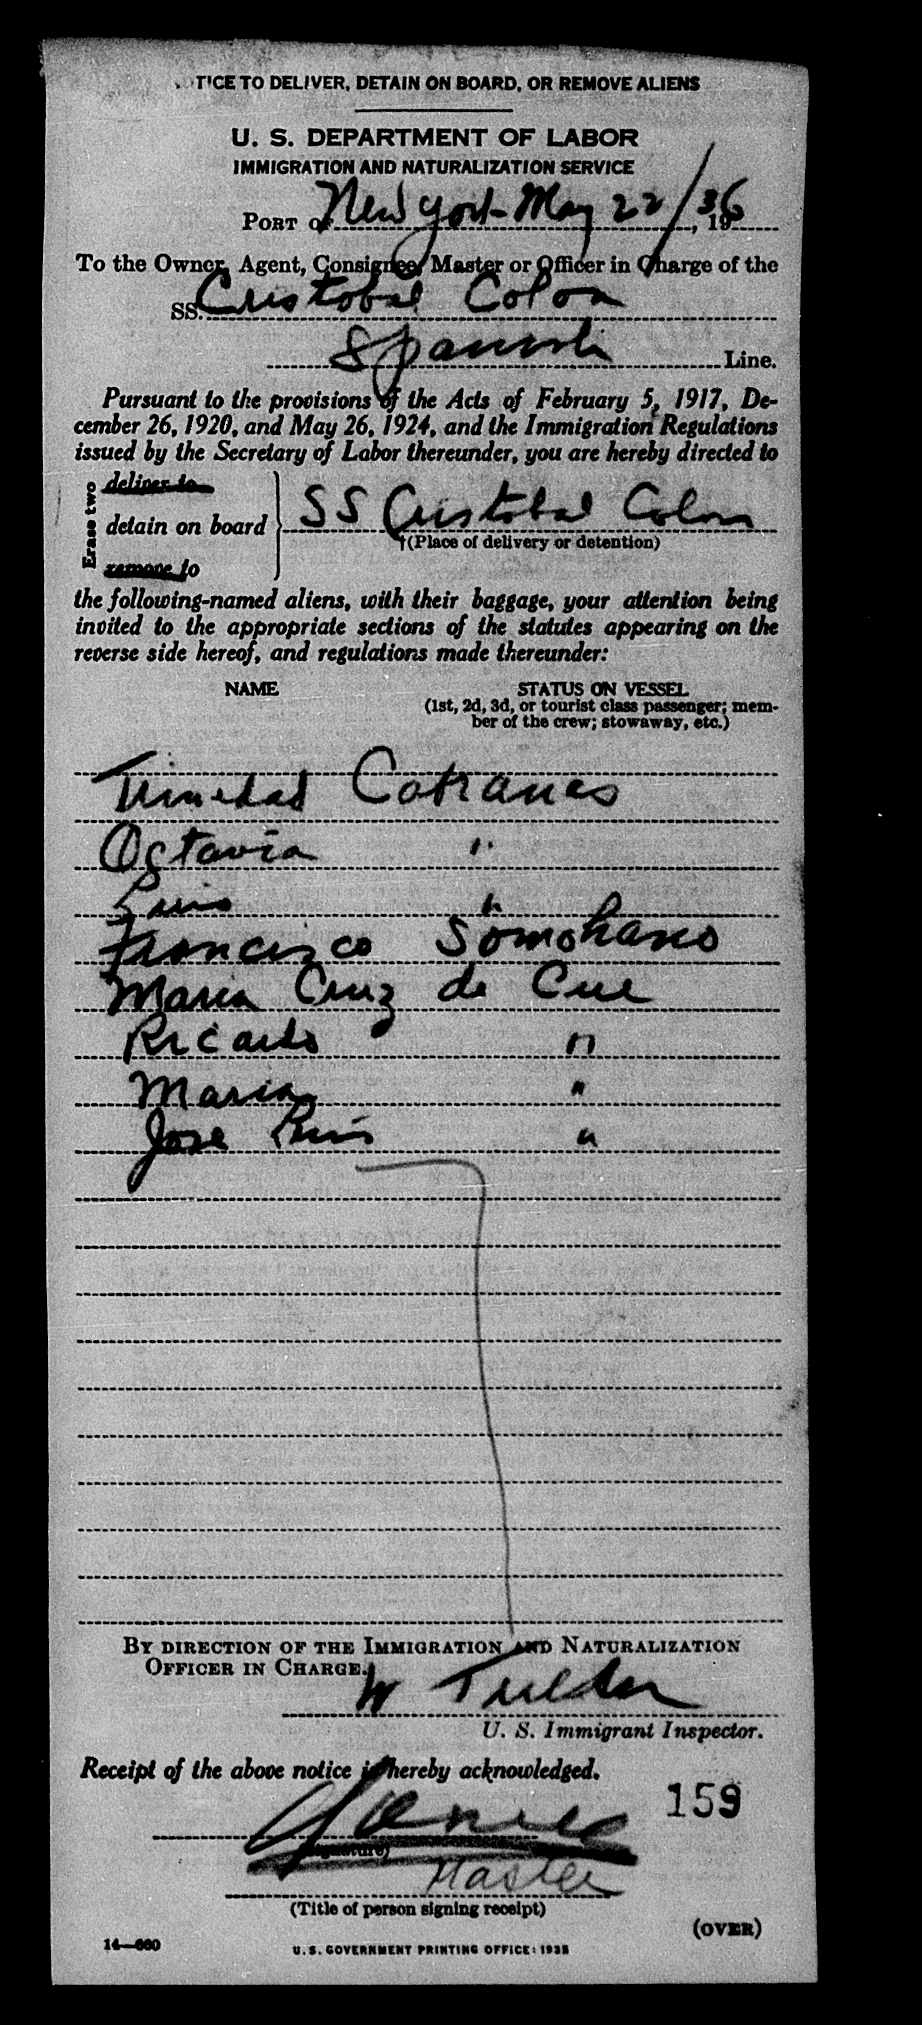 TICE TO DELIVER, DETAIN ON BOARD, OR REMOVE ALIENS
U. S. DEPARTMENT OF LABOR
IMMIGRATION AND NATURALIZATION SERVICE
PORT OF New York May 22/36, 19
To the Owner, Agent, Consignee, Master or Officer in Charge of the
SS. Cristobal Colon
Spanish Line.
Pursuant to the provisions of the Acts of February 5, 1917, De-
cember 26, 1920, and May 26, 1924, and the Immigration Regulations
issued by the Secretary of Labor thereunder, you are hereby directed to
Erase two
deliver to
detain on board } SS Cristobal Colon
†(Place of delivery or detention)
remove to
the following-named aliens, with their baggage, your attention being
invited to the appropriate sections of the statutes appearing on the
reverse side hereof, and regulations made thereunder:
NAME STATUS ON VESSEL
(1st, 2d, 3d, or tourist class passenger; mem-
ber of the crew; stowaway, etc.)
Trinidad Cabranes
Octavia "
Luis "
Francisco Somohano
Maria Cruz de Cue
Ricardo "
Maria "
Jose Luis "
BY DIRECTION OF THE IMMIGRATION AND NATURALIZATION
OFFICER IN CHARGE.
W
U. S. Immigrant Inspector.
Receipt of the above notice is hereby acknowledged.
159
(Signature)
Master
(Title of person signing receipt)
(OVER)
14—660 U. S. GOVERNMENT PRINTING OFFICE: 1935